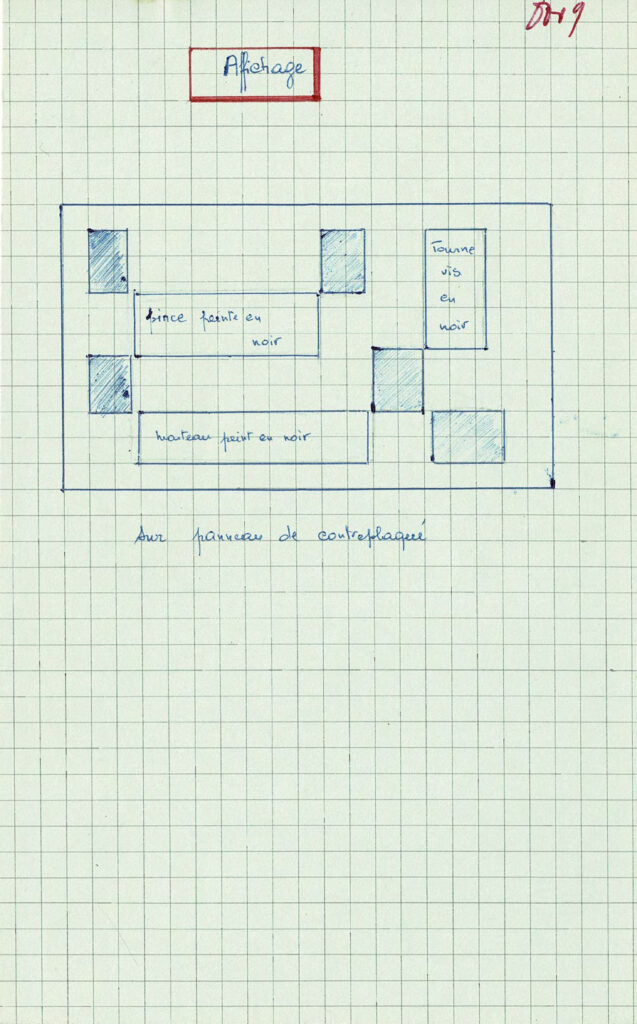 Afichage
Tourne
vis
en
noir
pince peinte en
noir
marteau peint en noir
sur panneau de contreplaqué